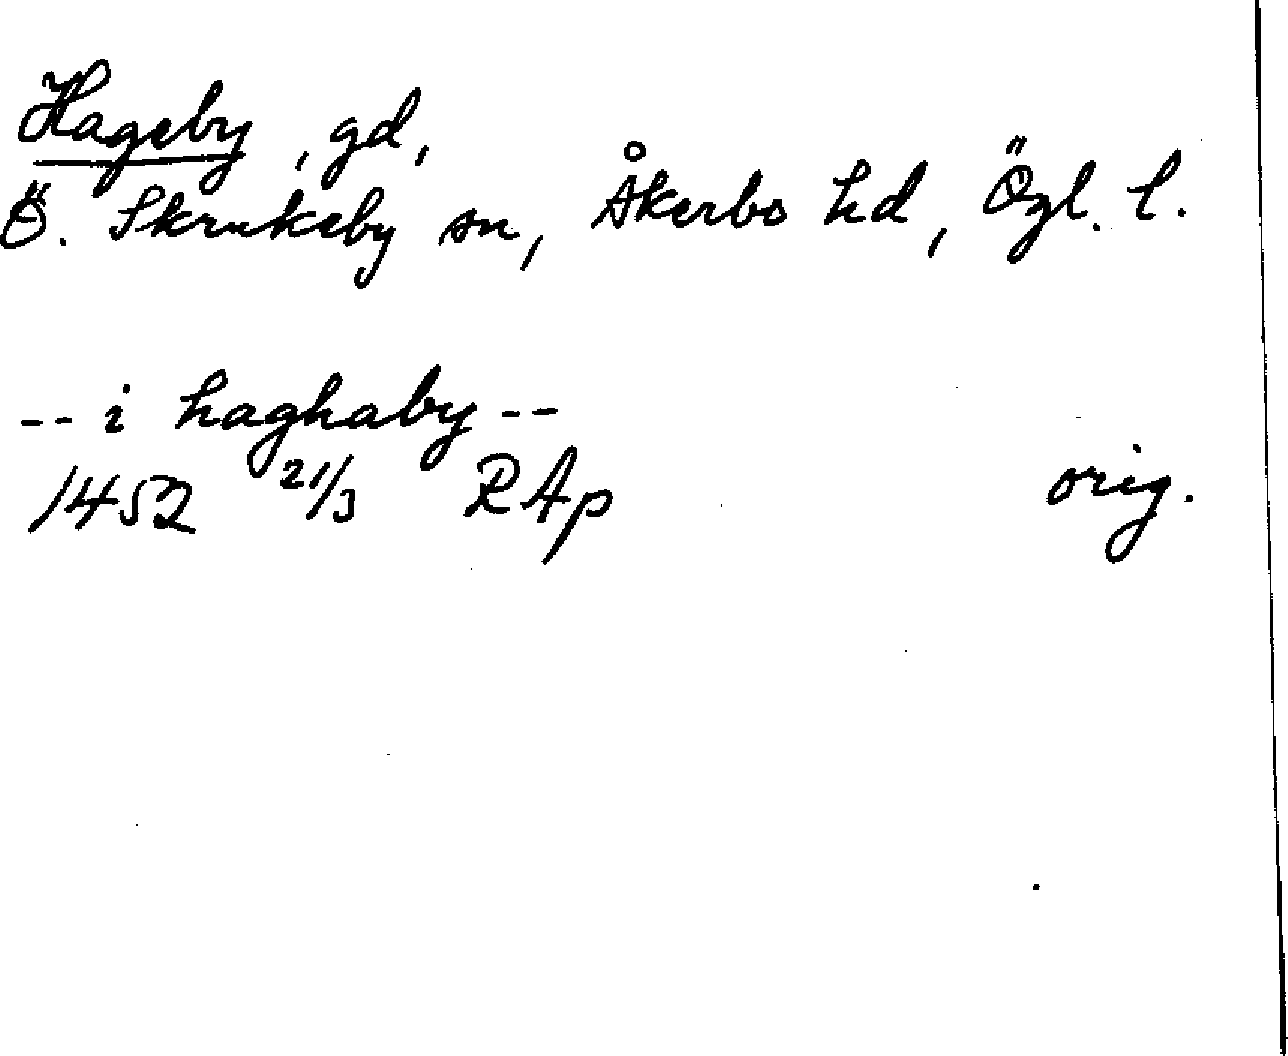 Hageby, gd,
Ö. Skrukeby sn, Åkerbo hd, Ögl. l.
-- i haghaby --
1452 21/3 RAp orig.